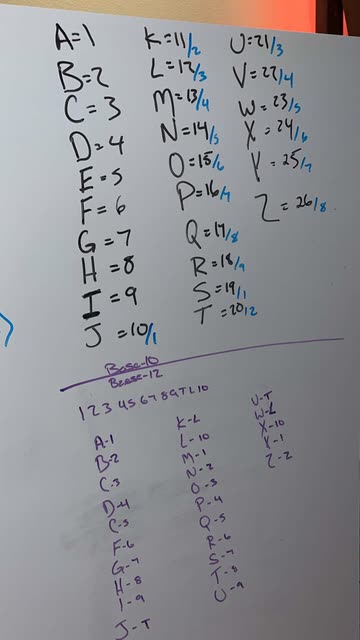 A=1
B=2
C=3
D=4
E=5
F=6
G=7
H=8
I=9
J=10/1
K=11/2
L=12/3
M=13/4
N=14/5
O=15/6
P=16/7
Q=17/8
R=18/9
S=19/1
T=20/2
U=21/3
V=22/4
W=23/5
X=24/6
Y=25/7
Z=26/8
Base-10
Base-12
1 2 3 4 5 6 7 8 9 T L 10
A-1
B-2
C-3
D-4
C-5
F-6
G-7
H-8
I-9
J-T
K-L
L-10
M-1
N-2
O-3
P-4
Q-5
R-6
S-7
T-8
U-9
V-T
W-L
X-10
Y-1
Z-2